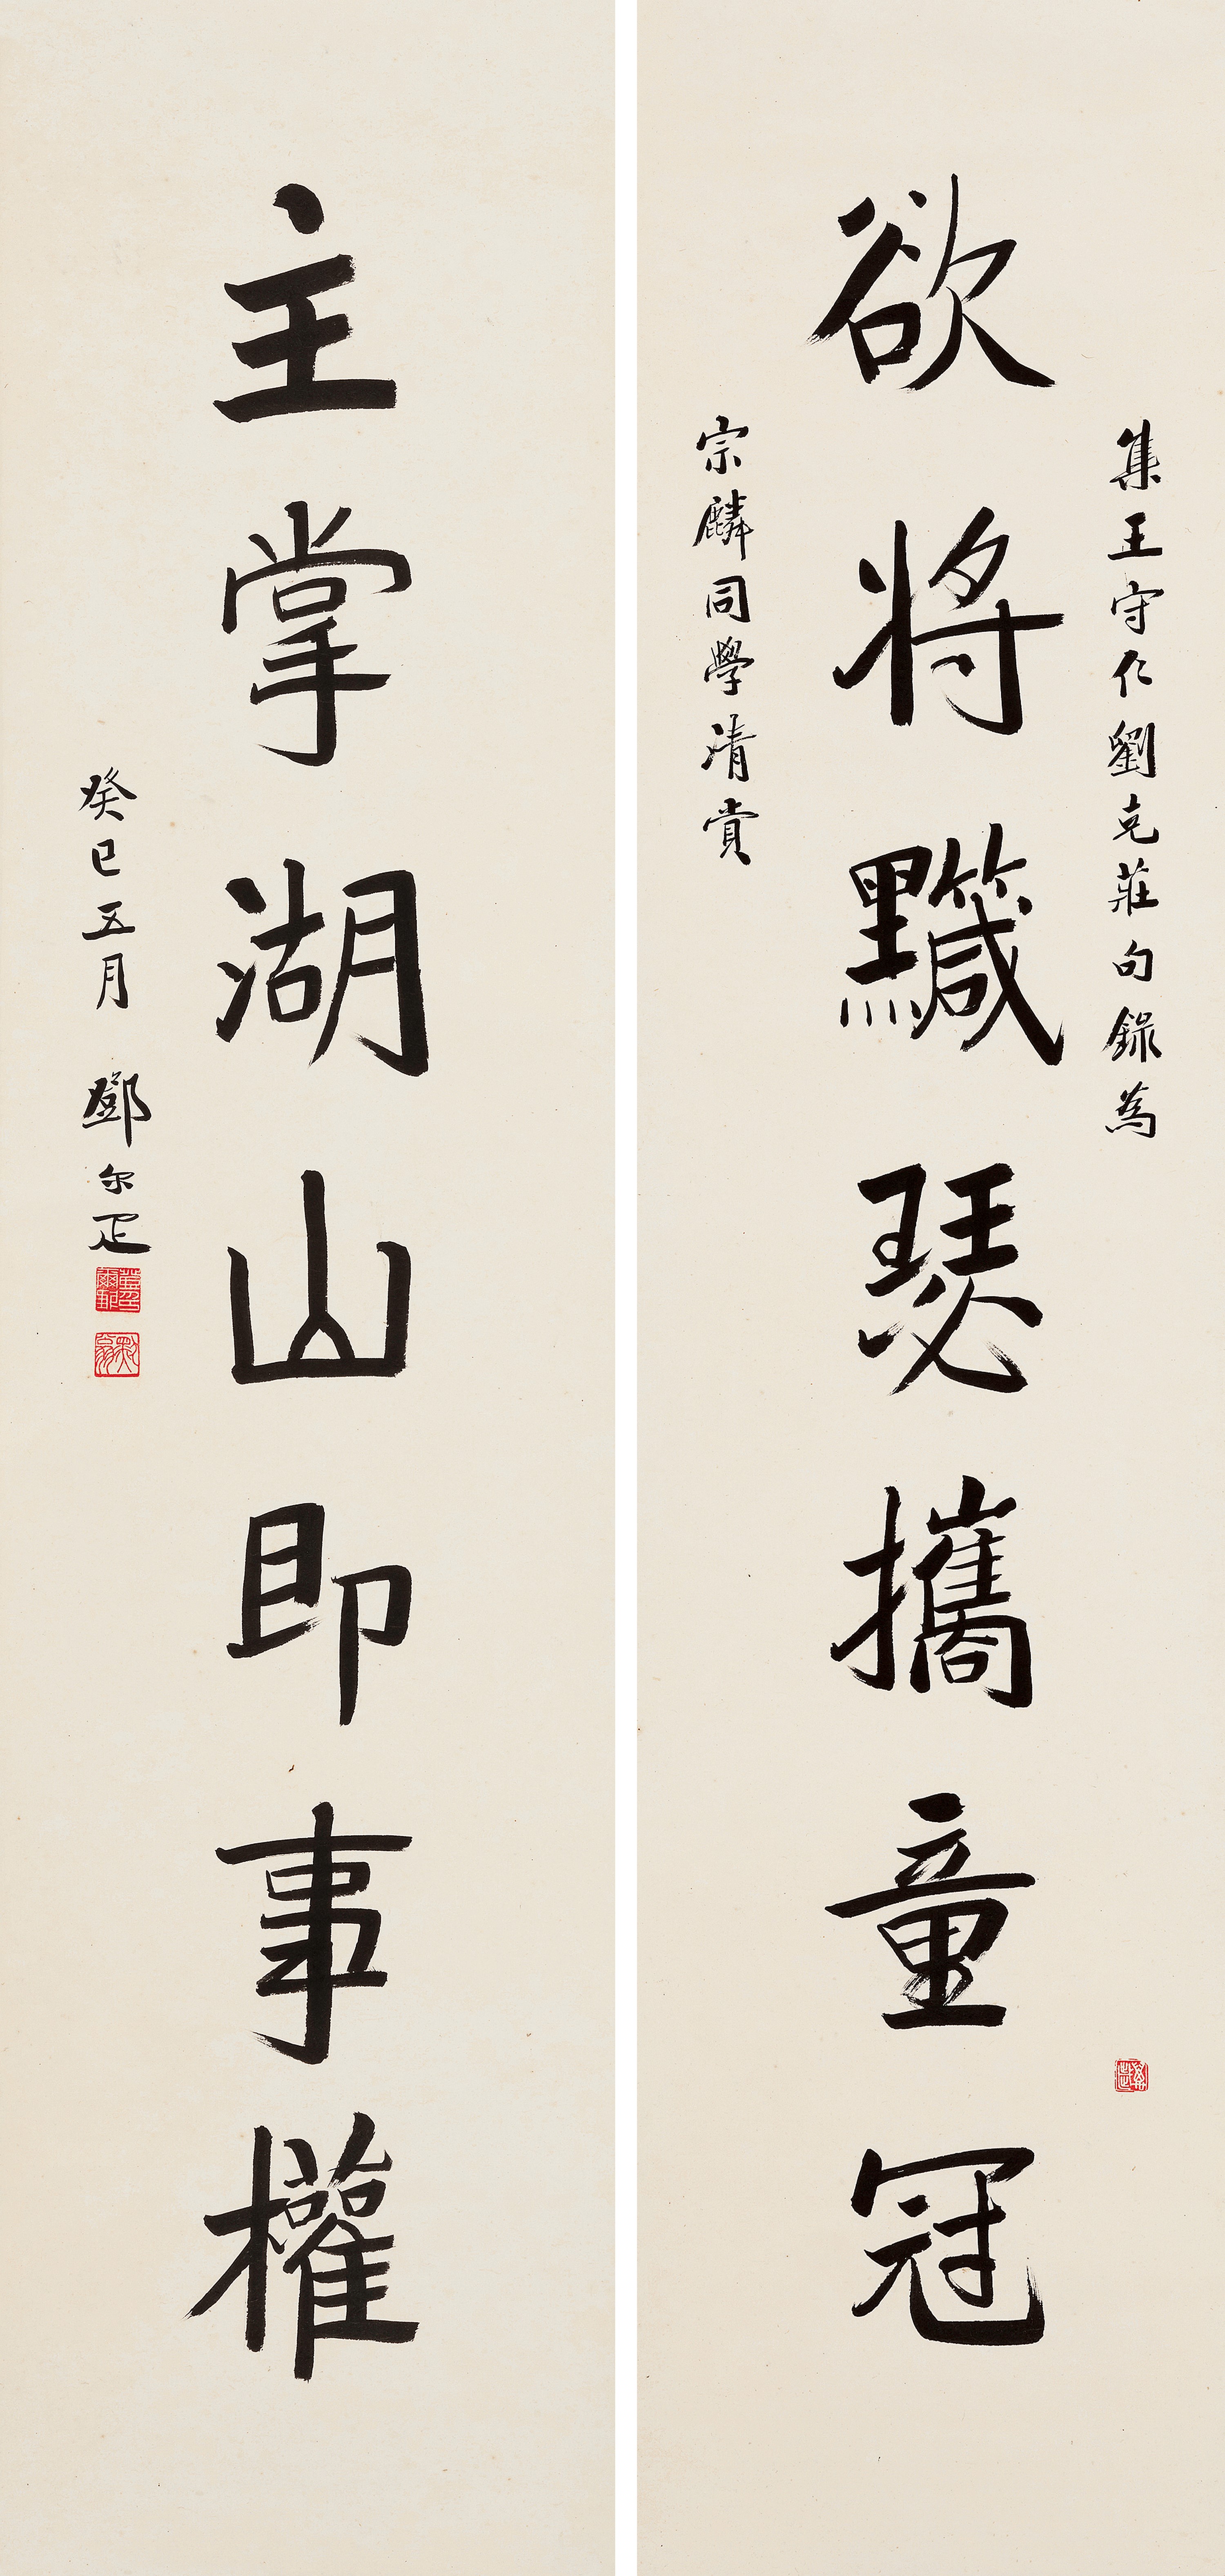 集王守仁劉克莊句錄為
欲將𪒹瑟攜童冠
宗麟同學清賞
主掌湖山即事權
癸巳五月 鄧尔疋